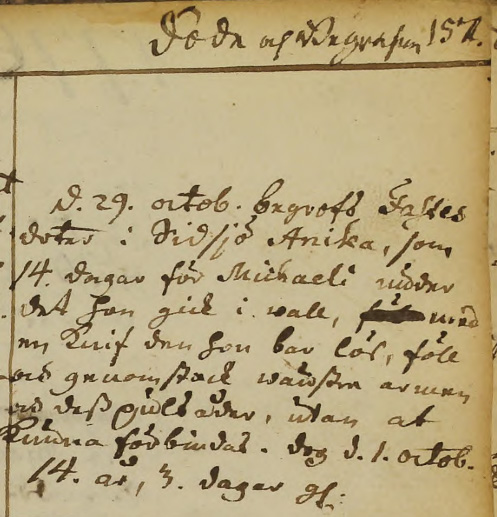 Döde och Begrafne 152.
d. 29. octob. begrofs
doter i Sidsjö Anika, som
14. dagar för Michaeli under
det hon gick i wall, med
en knif den hon bar lös, föll
och genomstack wänstra armen
och dess pulsåder, utan at
kunna förbindas. dog d. 1. octob.
14. år, 3. dagar gl: